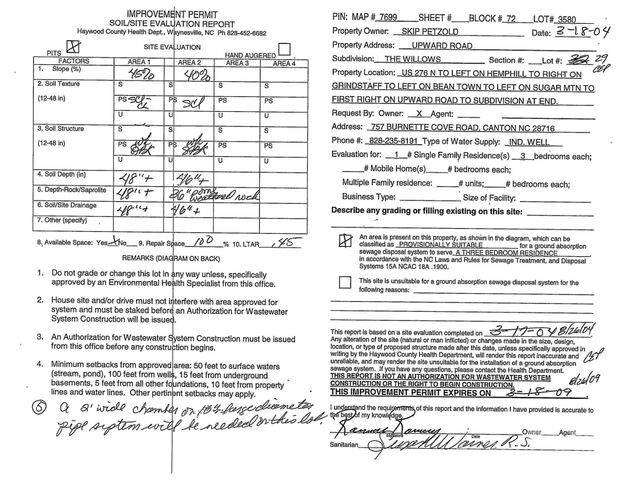 IMPROVEMENT PERMIT
SOIL/SITE EVALUATION REPORT
Haywood County Health Dept., Waynesville, NC Ph 828-452-6682
PITS X SITE EVALUATION HAND AUGERED
FACTORS AREA 1 AREA 2 AREA 3 AREA 4
1. Slope (%) 45% 40%
2. Soil Texture S S S S
(12-48 in) PS SCL- CL PS SCL PS PS
U U U U
3. Soil Structure S S S S
(12-48 in) PS PS PS PS
U U U U
4. Soil Depth (in) 48"+ 46"+
5. Depth-Rock/Saprolite 48"+ 36" weathered rock
6. Soil/Site Drainage 48"+ 46"+
7. Other (specify)
8. Available Space: Yes No 9. Repair Space 100 % 10. LTAR .45
REMARKS (DIAGRAM ON BACK)
1. Do not grade or change this lot in any way unless, specifically
approved by an Environmental Health Specialist from this office.
2. House site and/or drive must not interfere with area approved for
system and must be staked before an Authorization for Wastewater
System Construction will be issued.
3. An Authorization for Wastewater System Construction must be issued
from this office before any construction begins.
4. Minimum setbacks from approved area: 50 feet to surface waters
(stream, pond), 100 feet from wells, 15 feet from underground
basements, 5 feet from all other foundations, 10 feet from property
lines and water lines. Other pertinent setbacks may apply.
5 A 2' wide chamber or large diameter
pipe system will be needed on this lot.
PIN: MAP # 7699 SHEET # BLOCK # 72 LOT# 3580
Property Owner: SKIP PETZOLD Date: 3-18-04
Property Address: UPWARD ROAD
Subdivision: THE WILLOWS Section #: Lot #: 29
Property Location: US 276 N TO LEFT ON HEMPHILL TO RIGHT ON
GRINDSTAFF TO LEFT ON BEAN TOWN TO LEFT ON SUGAR MTN TO
FIRST RIGHT ON UPWARD ROAD TO SUBDIVISION AT END.
Request By: Owner: X Agent:
Address: 757 BURNETTE COVE ROAD, CANTON NC 28716
Phone #: 828-235-8191 Type of Water Supply: IND. WELL
Evaluation for: 1 # Single Family Residence(s) 3 bedrooms each;
# Mobile Home(s) # bedrooms each;
Multiple Family residence: # units; # bedrooms each;
Business Type: Size of Facility:
Describe any grading or filling existing on this site:
X An area is present on this property, as shown in the diagram, which can be
classified as PROVISIONALLY SUITABLE for a ground absorption
sewage disposal system to serve A THREE BEDROOM RESIDENCE
in accordance with the NC Laws and Rules for Sewage Treatment, and Disposal
Systems 15A NCAC 18A .1900.
This site is unsuitable for a ground absorption sewage disposal system for the
following reasons:
This report is based on a site evaluation completed on 3-17-04 8/26/04
Any alteration of the site (natural or man inflicted) or changes made in the size, design,
location, or type of proposed structure made after this date, unless specifically approved in
writing by the Haywood County Health Department, will render this report inaccurate and
unreliable, and may render the site unsuitable for the installation of a ground absorption
sewage system. If you have any questions, please contact the Health Department.
THIS REPORT IS NOT AN AUTHORIZATION FOR WASTEWATER SYSTEM
CONSTRUCTION OR THE RIGHT TO BEGIN CONSTRUCTION.
THIS IMPROVEMENT PERMIT EXPIRES ON 3-18-09
I understand the requirements of this report and the information I have provided is accurate to
the best of my knowledge.
Owner Agent
Signature Date
Sanitarian R.S.